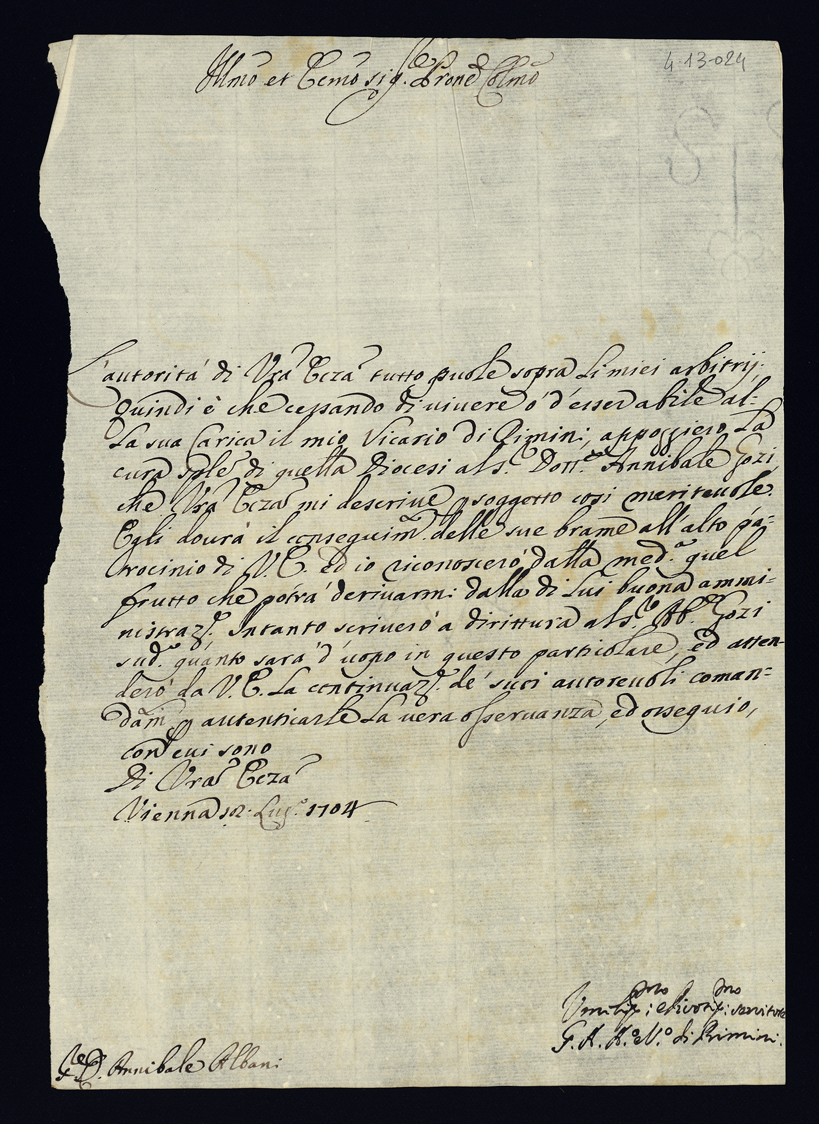 4-13-024
Illmo et Ecc.mo Sig.re Prone Colmo
L'autorità di Vra Ecza tutto puole sopra Li miei arbitrij.
Quindi è che cessando di vivere ó d'esser abile al-
La sua Carica il mio Vicario di Rimini, appoggierò La
cura sple di quella Diocesi al S. Dott.re Annibale Gozi
che Vra Ecza mi descrive p soggetto così meritevole.
Egli dourà il conseguim.to delle sue brame all'alto pa=
trocinio di V.E. ed io riconoscerò dalla med.a quel
frutto che potrà derivarmi dalla di Lui buona ammi=
nistraz.e. Intanto scriverò a dirittura al S. Ab.e Gozi
sud.o quanto sarà d'uopo in questo particolare, ed atten-
derò da V.E. La continuaz.e de' suoi autorevoli coman=
dam.ti p autenticarle La vera osservanza, ed ossequio,
con cui sono
Di Vra Ecza
Vienna 12. Lug.o 1704
Umiliss.mo e Divotiss.mo servitore
G. A. A. V.o di Rimini.
S.e D. Annibale Albani